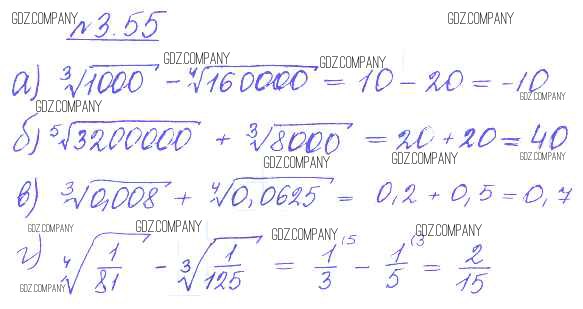 №3.55 GDZ.COMPANY
GDZ.COMPANY GDZ.COMPANY
а) ³√1000 - ⁴√160000 = 10 - 20 = -10
GDZ.COMPANY GDZ.COMPANY
б) ⁵√3200000 + ³√8000 = 20 + 20 = 40
GDZ.COMPANY GDZ.COMPANY GDZ.COMPANY
в) ³√0,008 + ⁴√0,0625 = 0,2 + 0,5 = 0,7
GDZ.COMPANY GDZ.COMPANY GDZ.COMPANY GDZ.COMPANY
г) ⁴√1/81 - ³√1/125 = 1/3 (5 - 1/5 (3 = 2/15
GDZ.COMPANY GDZ.COMPANY